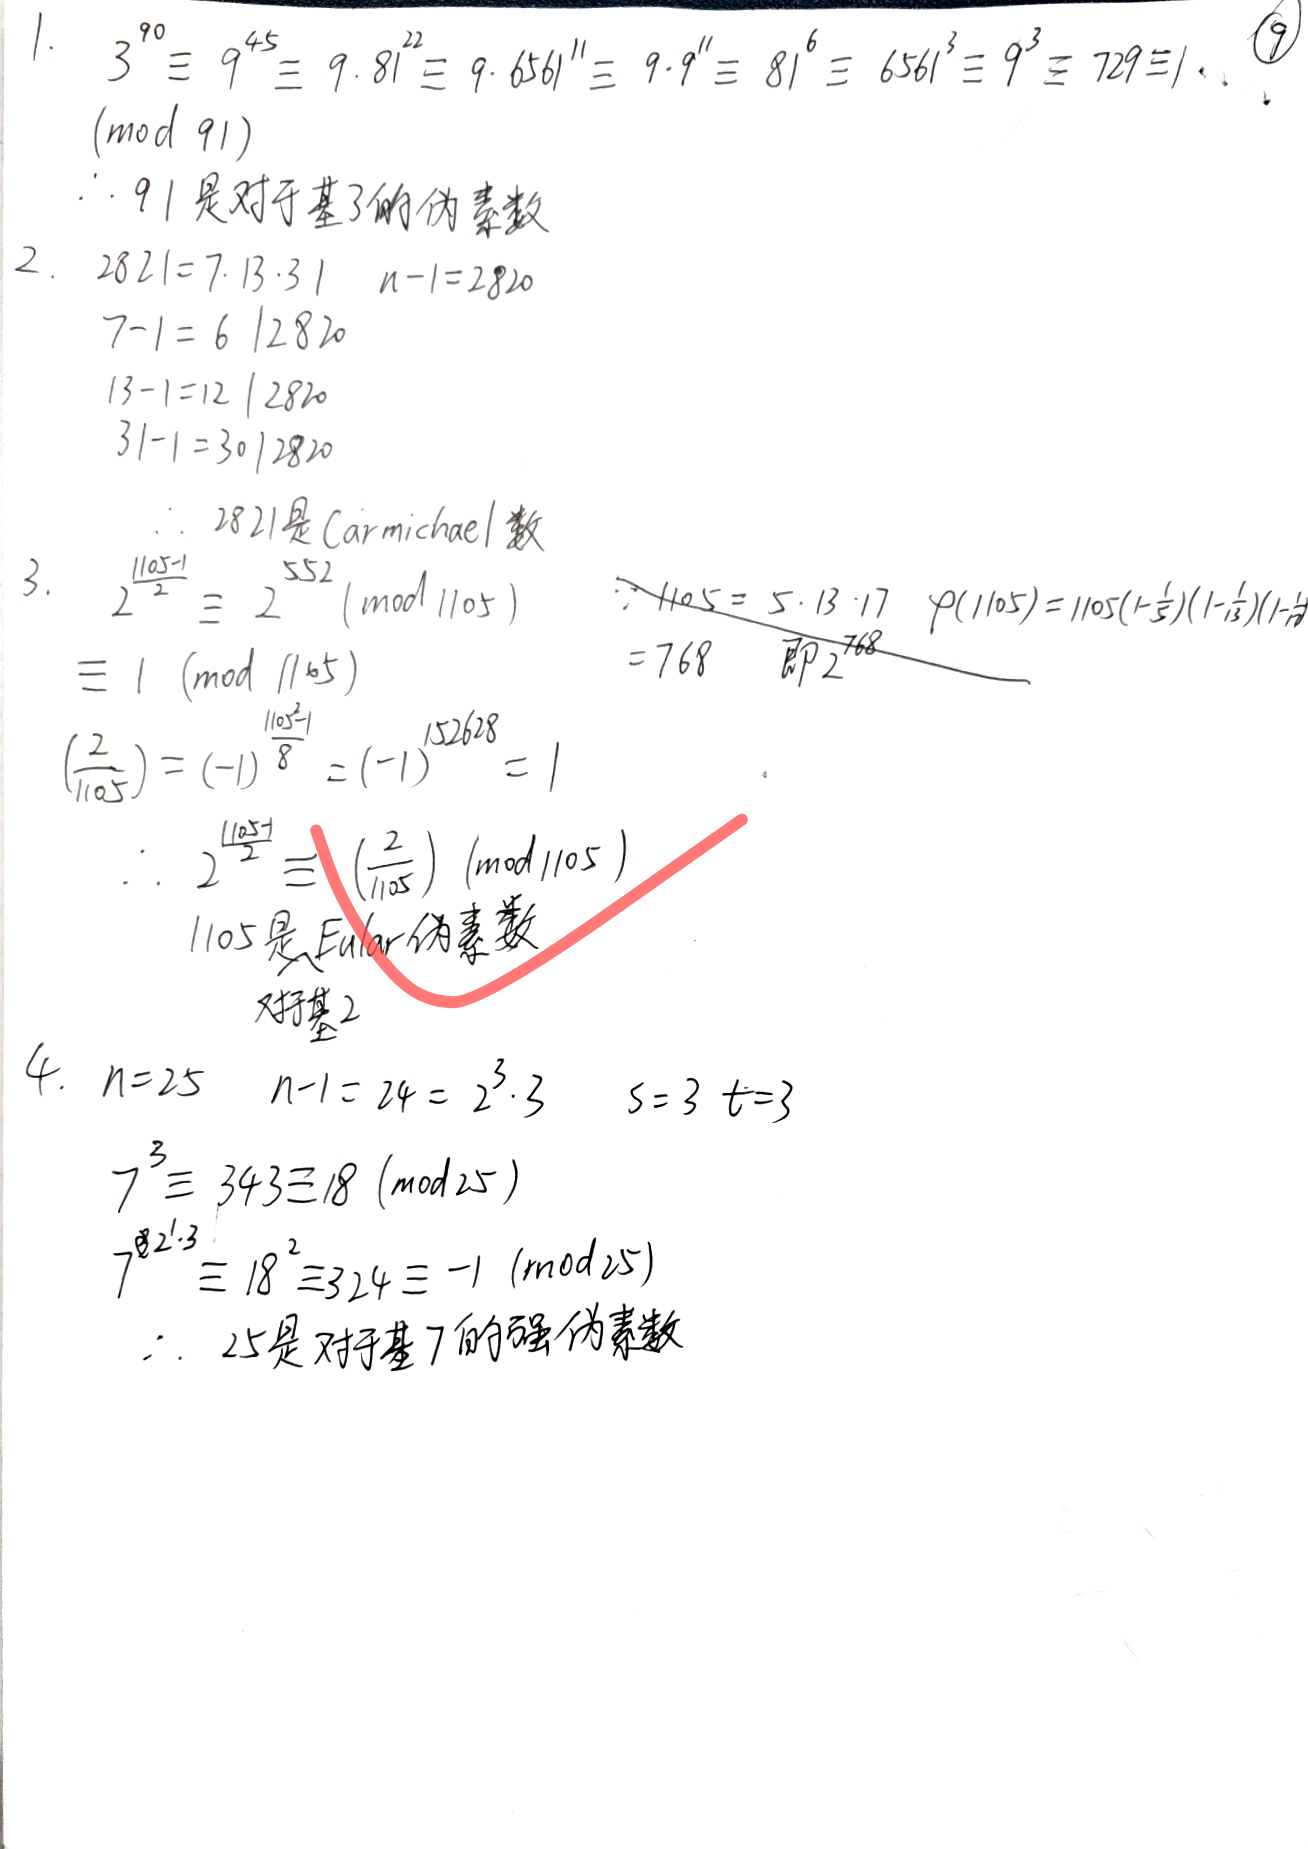 ⑨
1. 3^90 ≡ 9^45 ≡ 9·81^22 ≡ 9·6561^11 ≡ 9·9^11 ≡ 81^6 ≡ 6561^3 ≡ 9^3 ≡ 729 ≡ 1
(mod 91)
∴ 91是对于基3的伪素数
2. 2821=7·13·31 n-1=2820
7-1=6|2820
13-1=12|2820
31-1=30|2820
∴ 2821是Carmichael数
3. 2^((1105-1)/2) ≡ 2^552 (mod 1105) ∵ 1105 = 5·13·17 φ(1105)=1105(1-1/5)(1-1/13)(1-
≡ 1 (mod 1105) =768 即2^768
(2/1105) = (-1)^((1105²-1)/8) = (-1)^152628 = 1
∴ 2^((1105-1)/2) ≡ (2/1105) (mod 1105)
1105是Eular伪素数
对于基2
4. n=25 n-1=24=2^3·3 s=3 t=3
7^3 ≡ 343 ≡ 18 (mod 25)
7^(2^1·3) ≡ 18^2 ≡ 324 ≡ -1 (mod 25)
∴ 25是对于基7的强伪素数